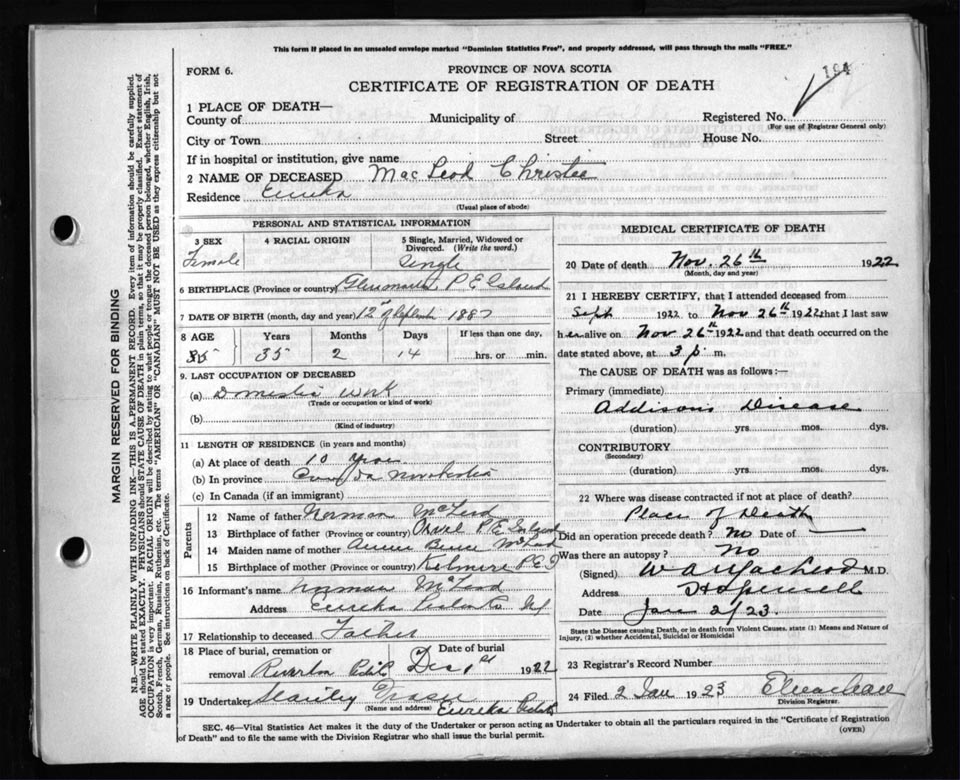 This form if placed in an unsealed envelope marked "Dominion Statistics Free", and properly addressed, will pass through the mails "FREE."
FORM 6.
PROVINCE OF NOVA SCOTIA
CERTIFICATE OF REGISTRATION OF DEATH
1 PLACE OF DEATH—
County of Municipality of Registered No.
(For use of Registrar General only)
City or Town Street House No.
If in hospital or institution, give name
2 NAME OF DECEASED Mac Leod Christee
Residence Eureka
(Usual place of abode)
PERSONAL AND STATISTICAL INFORMATION
3 SEX 4 RACIAL ORIGIN 5 Single, Married, Widowed or Divorced. (Write the word.)
Female Single
6 BIRTHPLACE (Province or country) P E Island
7 DATE OF BIRTH (month, day and year) 12th of Septemb 1887
8 AGE Years Months Days If less than one day,
35 2 14 hrs. or min.
9. LAST OCCUPATION OF DECEASED
(a) Domestic Work
(Trade or occupation or kind of work)
(b)
(Kind of industry)
11 LENGTH OF RESIDENCE (in years and months)
(a) At place of death 10 years
(b) In province Nova Scotia
(c) In Canada (if an immigrant)
Parents
12 Name of father Norman McLeod
13 Birthplace of father (Province or country) Orwel P E Island
14 Maiden name of mother McLeod
15 Birthplace of mother (Province or country) P.E.I
16 Informant's name Norman McLeod
Address Eureka Pictou Co
17 Relationship to deceased Father
18 Place of burial, cremation or removal Date of burial
Riverton Dec 1st 1922
19 Undertaker Stanley Fraser
(Name and address) Eureka
MEDICAL CERTIFICATE OF DEATH
20 Date of death Nov. 26th 1922
(Month, day and year)
21 I HEREBY CERTIFY, that I attended deceased from
Sept 1922 to Nov 26th 1922 that I last saw
her alive on Nov 26th 1922 and that death occurred on the
date stated above, at 3 p. m.
The CAUSE OF DEATH was as follows:—
Primary (immediate)
Addisons Disease
(duration) yrs. mos. dys.
CONTRIBUTORY
(Secondary)
(duration) yrs. mos. dys.
22 Where was disease contracted if not at place of death?
Place of Death
Did an operation precede death? No Date of
Was there an autopsy? No
(Signed) M.D.
Address Hopewell
Date Jan 2/23.
State the Disease causing Death, or in death from Violent Causes, state (1) Means and Nature of Injury, (2) whether Accidental, Suicidal or Homicidal
23 Registrar's Record Number
24 Filed 2 Jan 1923
Division Registrar.
SEC. 46—Vital Statistics Act makes it the duty of the Undertaker or person acting as Undertaker to obtain all the particulars required in the "Certificate of Registration
of Death" and to file the same with the Division Registrar who shall issue the burial permit.
(OVER)
MARGIN RESERVED FOR BINDING
N.B.—WRITE PLAINLY WITH UNFADING INK—THIS IS A PERMANENT RECORD. Every item of information should be carefully supplied.
AGE should be stated EXACTLY. PHYSICIANS should STATE CAUSE OF DEATH in plain terms, so that it may be properly classified. Exact statement of
OCCUPATION is very important. RACIAL ORIGIN will be described by stating to what people or tongue the deceased person belonged, whether English, Irish,
Scotch, French, German, Russian, Ruthenian, etc. The terms "AMERICAN" OR "CANADIAN" MUST NOT BE USED as they express citizenship but not
a race or people. See instructions on back of Certificate.